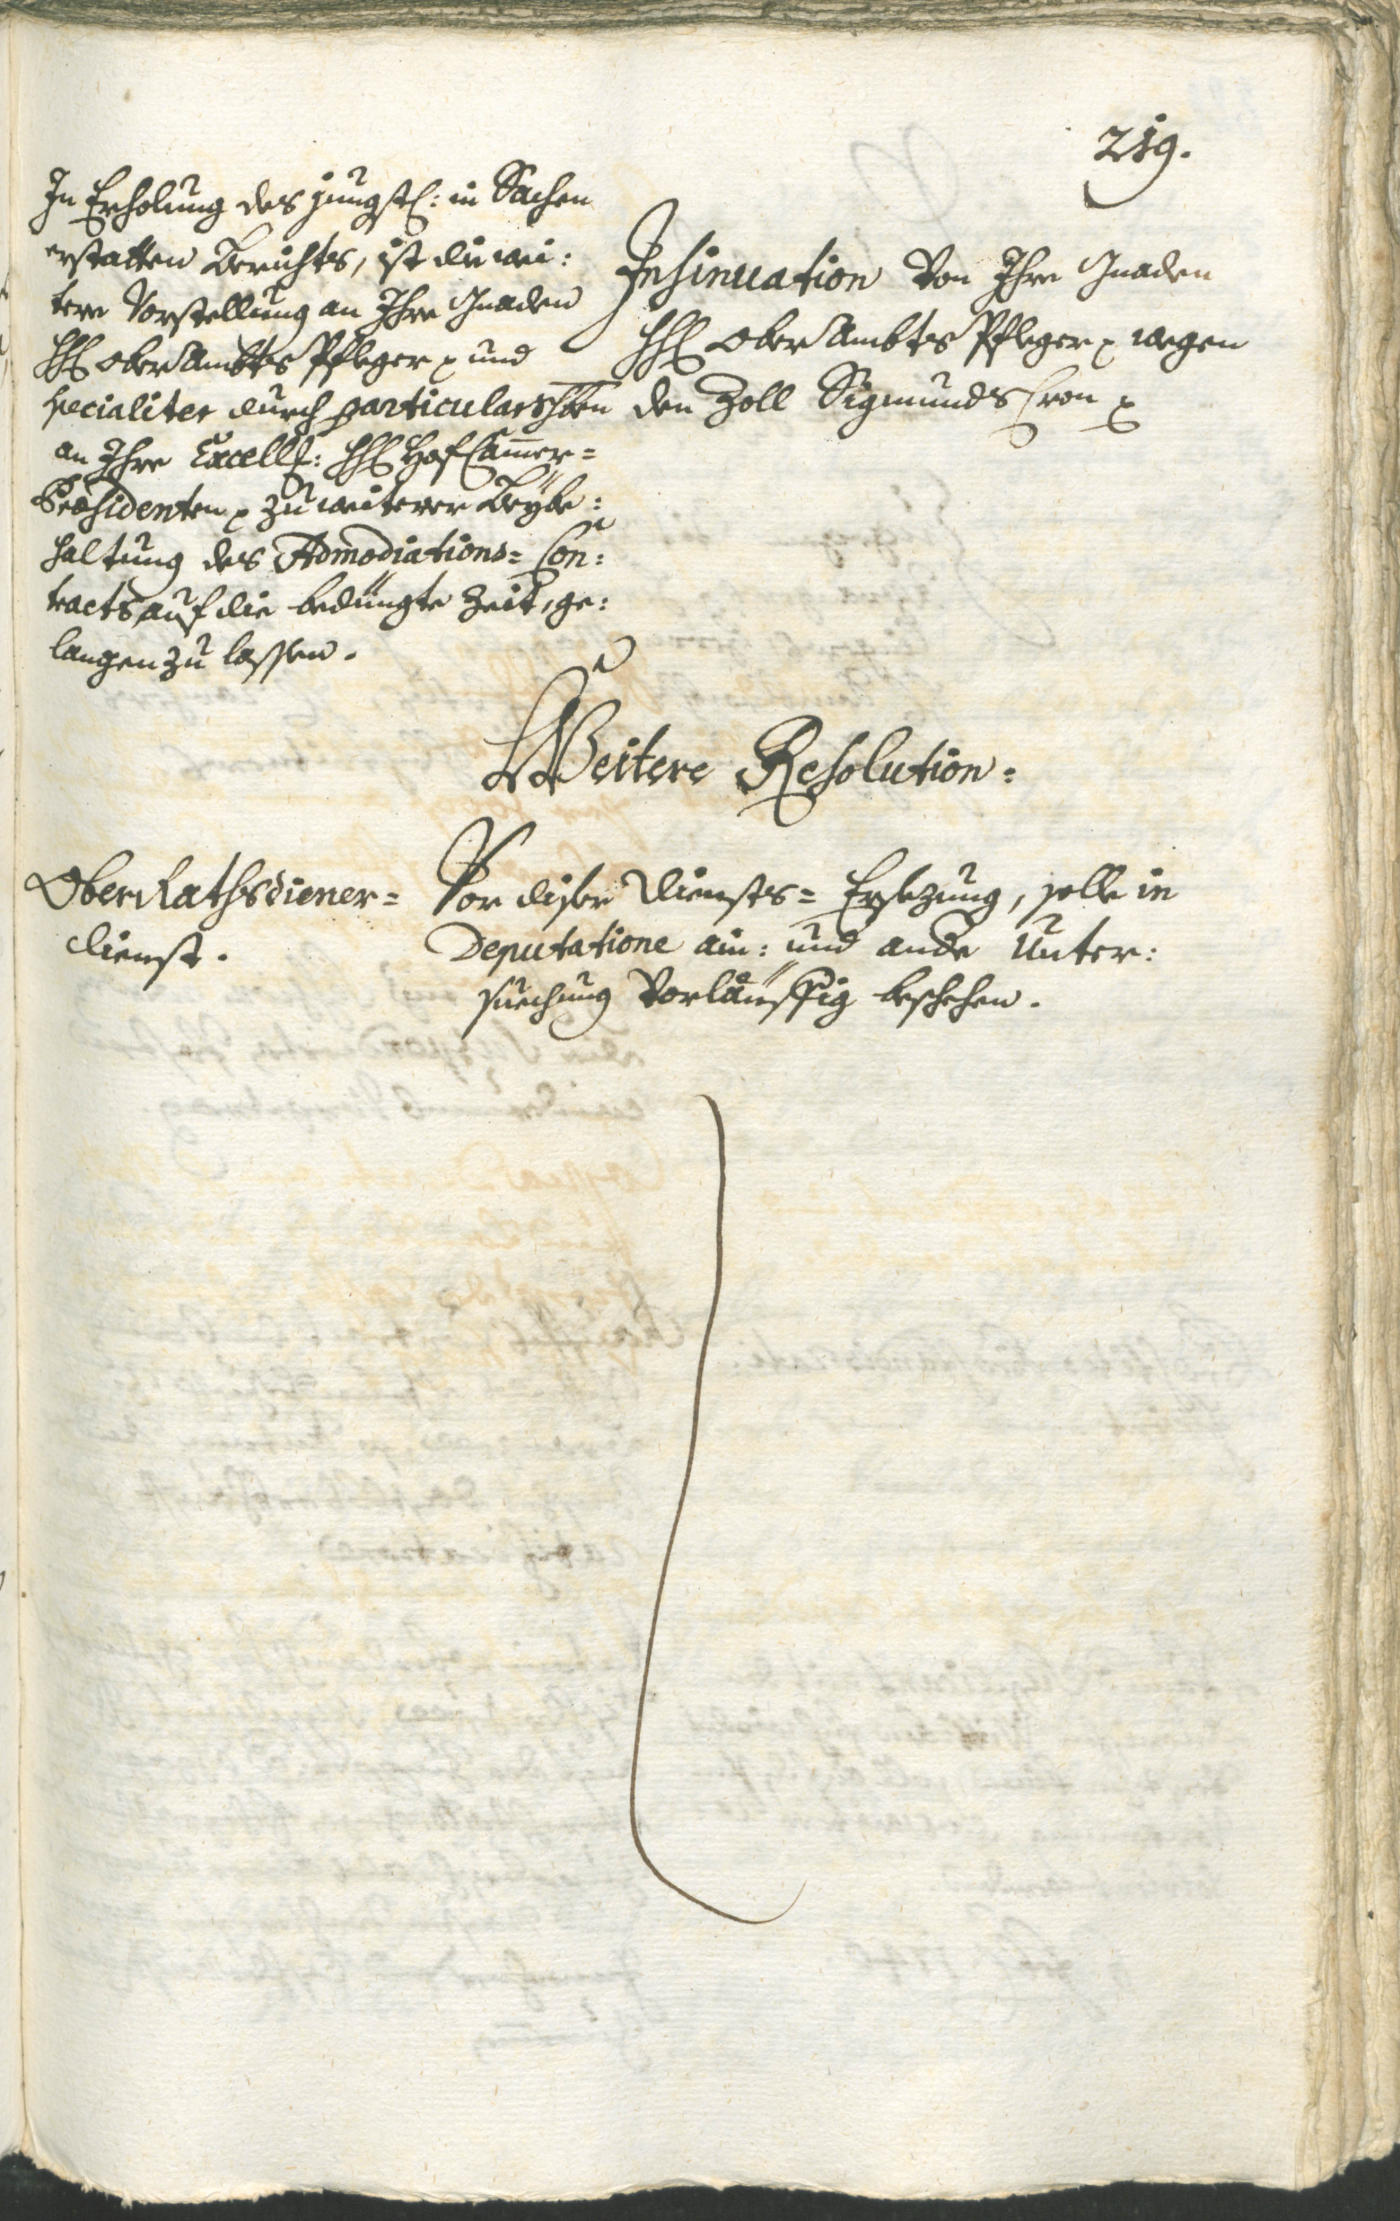 219.
In Erholung des jungst: in Sachen
erstatten Berichts, ist die wei:
tere Vorstellung an Ihre Gnaden
H. ober Ambts Pfleger und
specialiter durch particularschben
an Ihre Excell: H. Hof Cammer=
Præsidenten zu weiterer Beybe:
haltung des Admodiations= Con:
tracts, auf die bedüngte Zeit, ge:
langen zu lassen.
Insinuation Von Ihre Gnaden
H. ober Ambts Pfleger wegen
den Zoll Sigmunds Cron
Weitere Resolution:
Ober Rathsdiener=
dienst.
Vor diser Diensts= Ersezung, solle in
Deputatione ain: und ande Unter:
suechung Vorläuffig beschehen.